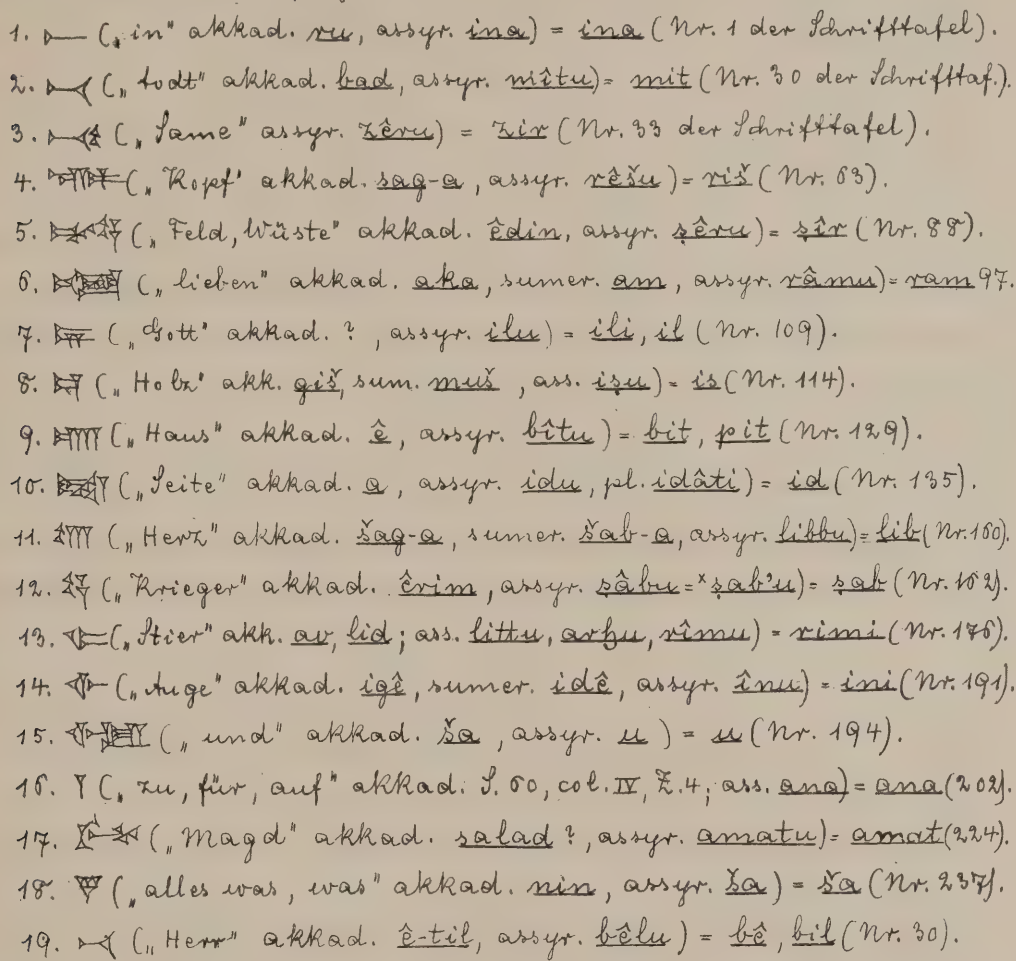 1. 𒀸 („in“ akkad. ru, assyr. ina) = ina (Nr. 1 der Schrifttafel).
2. 𒁁 („todt“ akkad. bad, assyr. mîtu) = mit (Nr. 30 der Schrifttaf.).
3. („Same“ assyr. zêru) = zir (Nr. 33 der Schrifttafel).
4. („Kopf“ akkad. sag-a, assyr. rêšu) = riš (Nr. 63).
5. („Feld, Wüste“ akkad. êdin, assyr. ṣêru) = ṣîr (Nr. 88).
6. („lieben“ akkad. aka, sumer. am, assyr. râmu) = ram 97.
7. („Gott“ akkad. ?, assyr. ilu) = ili, il (Nr. 109).
8. („Holz“ akk. giš, sum. muš, ass. iṣu) = is (Nr. 114).
9. („Haus“ akkad. ê, assyr. bîtu) = bit, pit (Nr. 129).
10. („Seite“ akkad. a, assyr. idu, pl. idâti) = id (Nr. 135).
11. („Herz“ akkad. šag-a, sumer. šab-a, assyr. libbu) = lib (Nr. 160).
12. („Krieger“ akkad. êrim, assyr. ṣâbu = ˣṣab’u) = ṣab (Nr. 162).
13. („Stier“ akk. av, lid; ass. littu, arḫu, rîmu) = rimi (Nr. 176).
14. („Auge“ akkad. igê, sumer. idê, assyr. înu) = ini (Nr. 191).
15. („und“ akkad. ša, assyr. u) = u (Nr. 194).
16. 𒁹 („zu, für, auf“ akkad. S. 60, col. IV, Z. 4; ass. ana) = ana (202).
17. („Magd“ akkad. salad ?, assyr. amatu) = amat (224).
18. („alles was, was“ akkad. nin, assyr. ša) = ša (Nr. 237).
19. 𒁁 („Herr“ akkad. ê-til, assyr. bêlu) = bê, bil (Nr. 30).